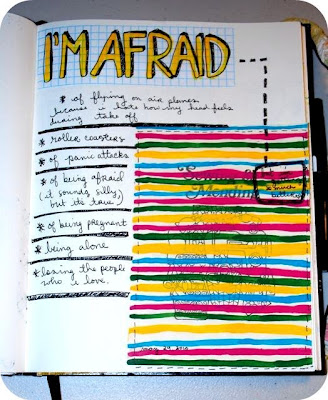 I'M AFRAID
* of flying on air planes
because i hate how my head feels
during take off
* roller coasters
* of panic attacks
* of being afraid
(it sounds silly,
but its true)
* of being pregnant
* being alone
* losing the people
who i love.
much
better
may 29 2010